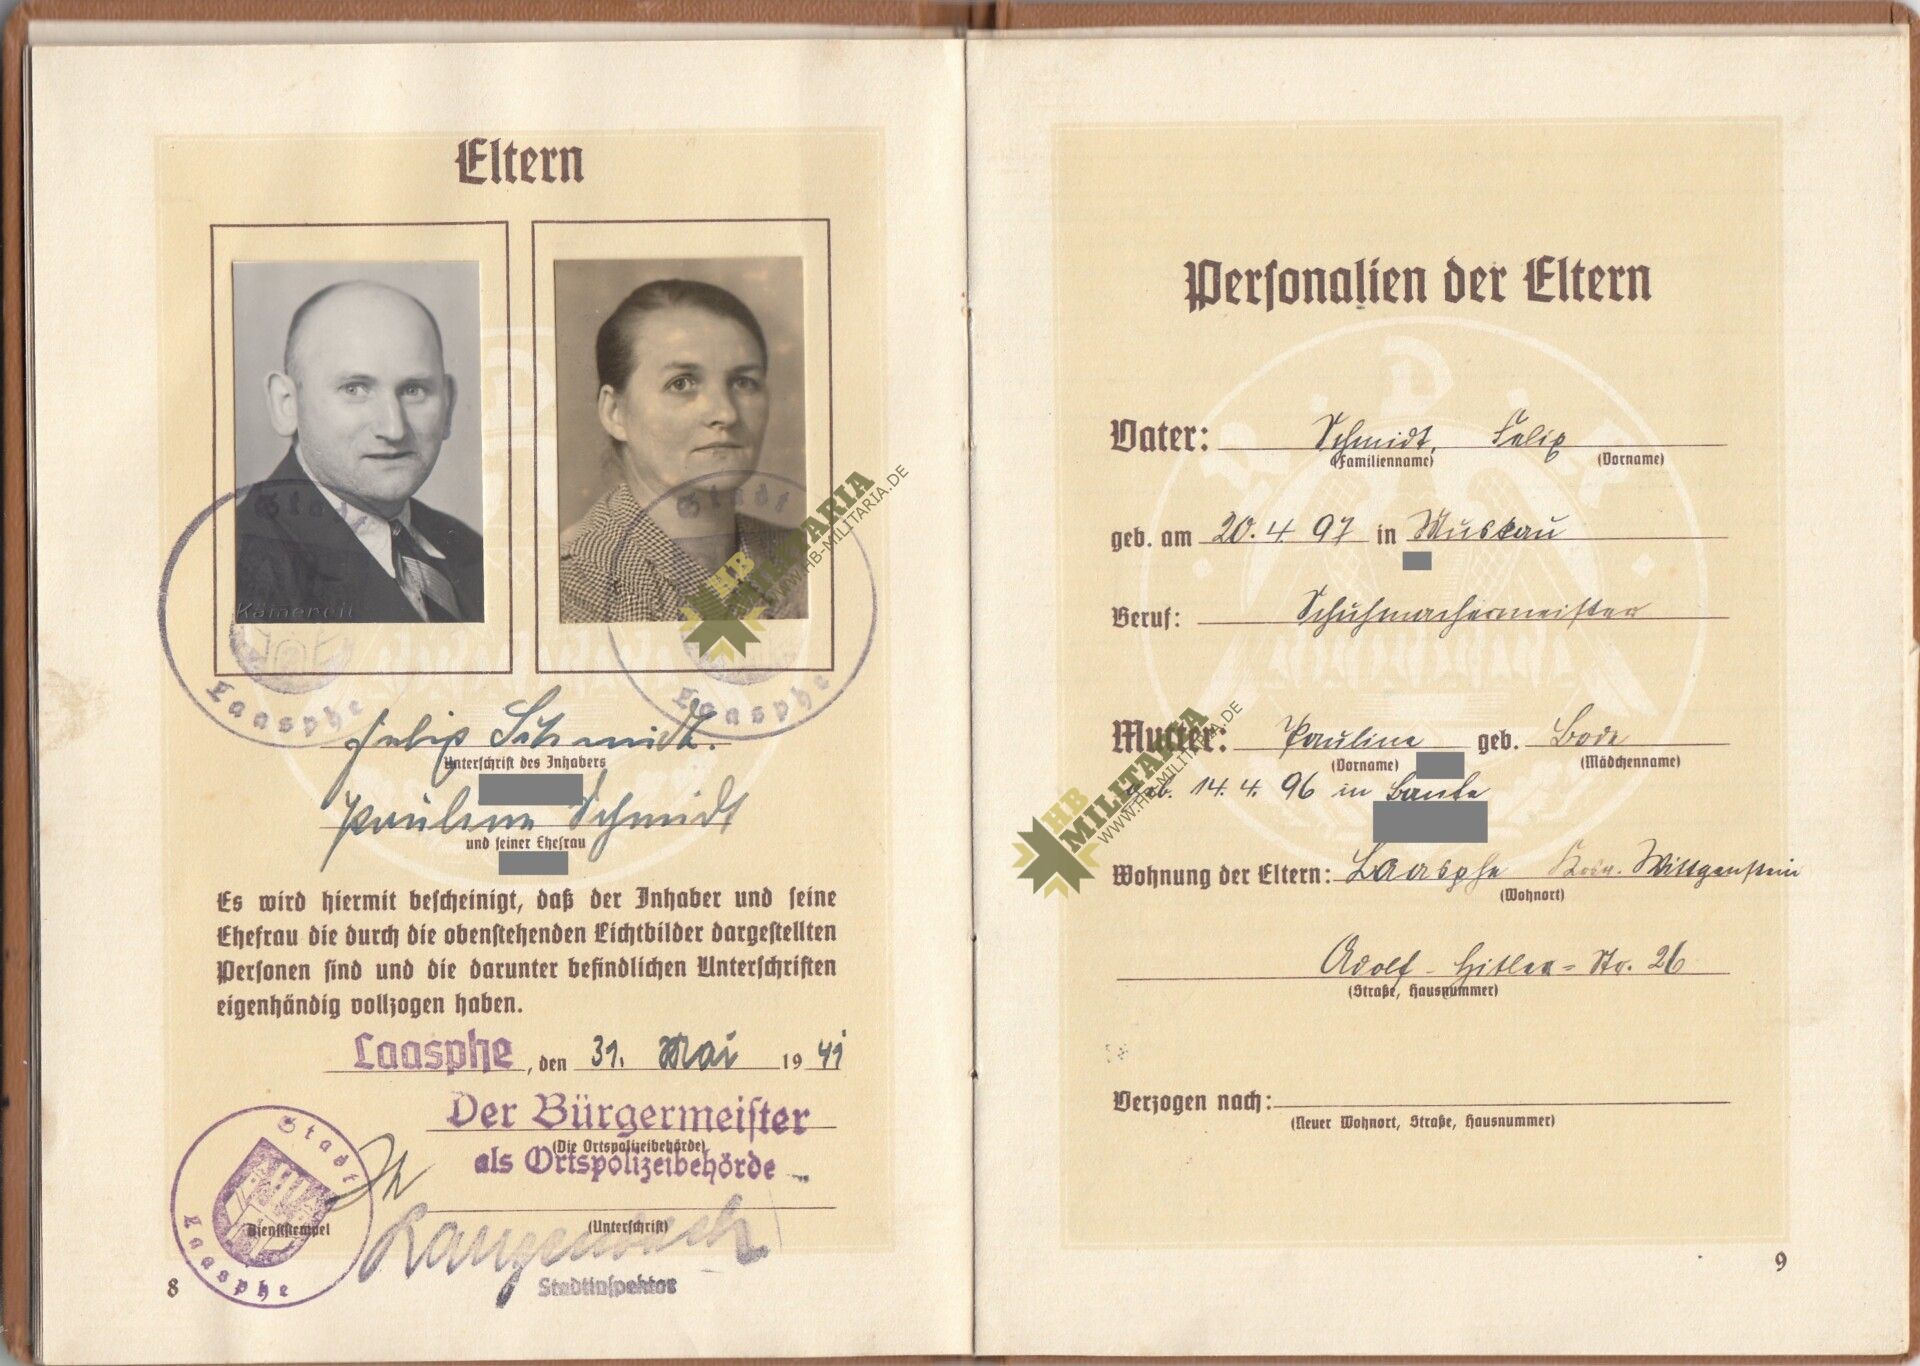 Eltern
Kamerell
Stadt
Laasphe
Stadt
Laasphe
HB MILITARIA
WWW.HB-MILITARIA.DE
Felix Schmidt.
Unterschrift des Inhabers
Pauline Schmidt
und seiner Ehefrau
Es wird hiermit bescheinigt, daß der Inhaber und seine
Ehefrau die durch die obenstehenden Lichtbilder dargestellten
Personen sind und die darunter befindlichen Unterschriften
eigenhändig vollzogen haben.
Laasphe, den 31. Mai 1941
Der Bürgermeister
(Die Ortspolizeibehörde)
als Ortspolizeibehörde
Stadt
Laasphe
Dienststempel
(Unterschrift)
Stadtinspektor
8
Personalien der Eltern
Vater: Schmidt, Felix
(Familienname) (Vorname)
geb. am 20. 4. 97 in Muskau
Beruf: Schuhmachermeister
Mutter: Pauline geb. Bode
(Vorname) (Mädchenname)
geb. 14. 4. 96 in
HB MILITARIA
WWW.HB-MILITARIA.DE
Wohnung der Eltern: Laasphe Wittgenstein
(Wohnort)
Adolf-Hitler-Str. 26
(Straße, Hausnummer)
Verzogen nach:
(Neuer Wohnort, Straße, Hausnummer)
9